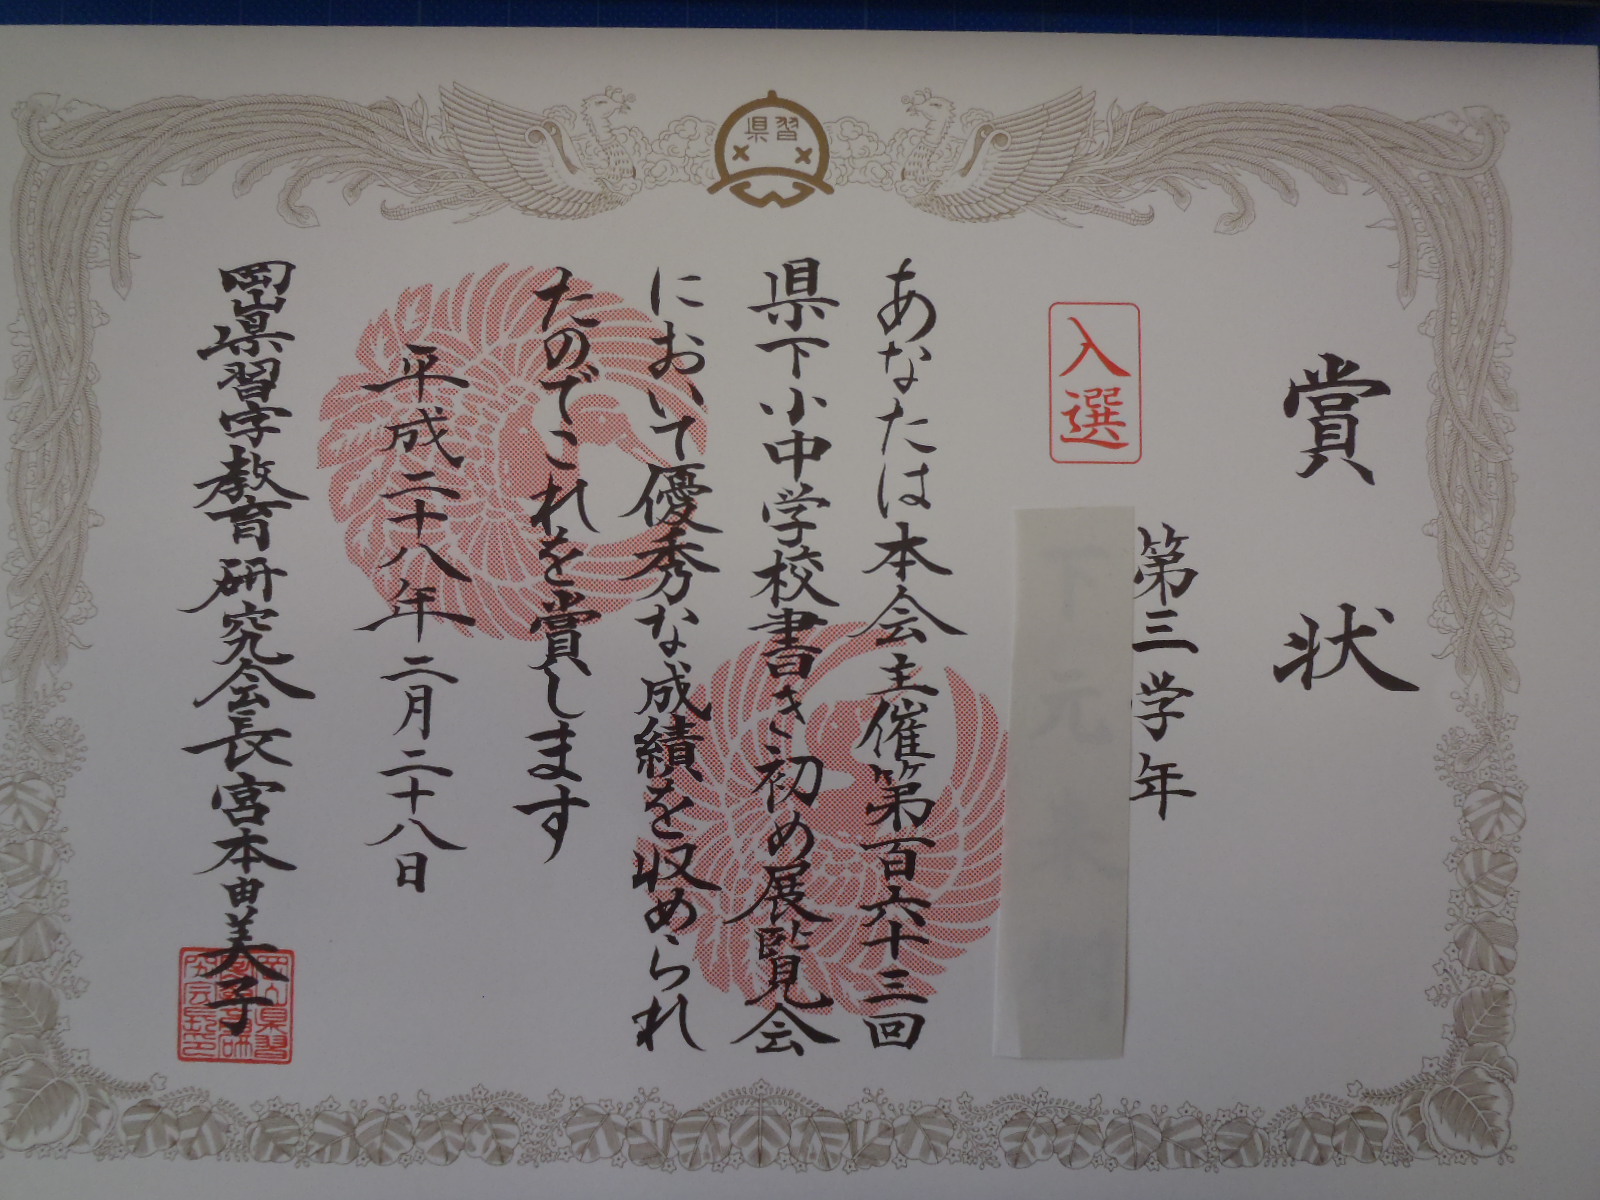 県習
賞状
入選
第三学年
あなたは本会主催第百六十三回
県下小中学校書き初め展覧会
において優秀な成績を収められ
たのでこれを賞します
平成二十八年二月二十八日
岡山県習字教育研究会長宮本由美子